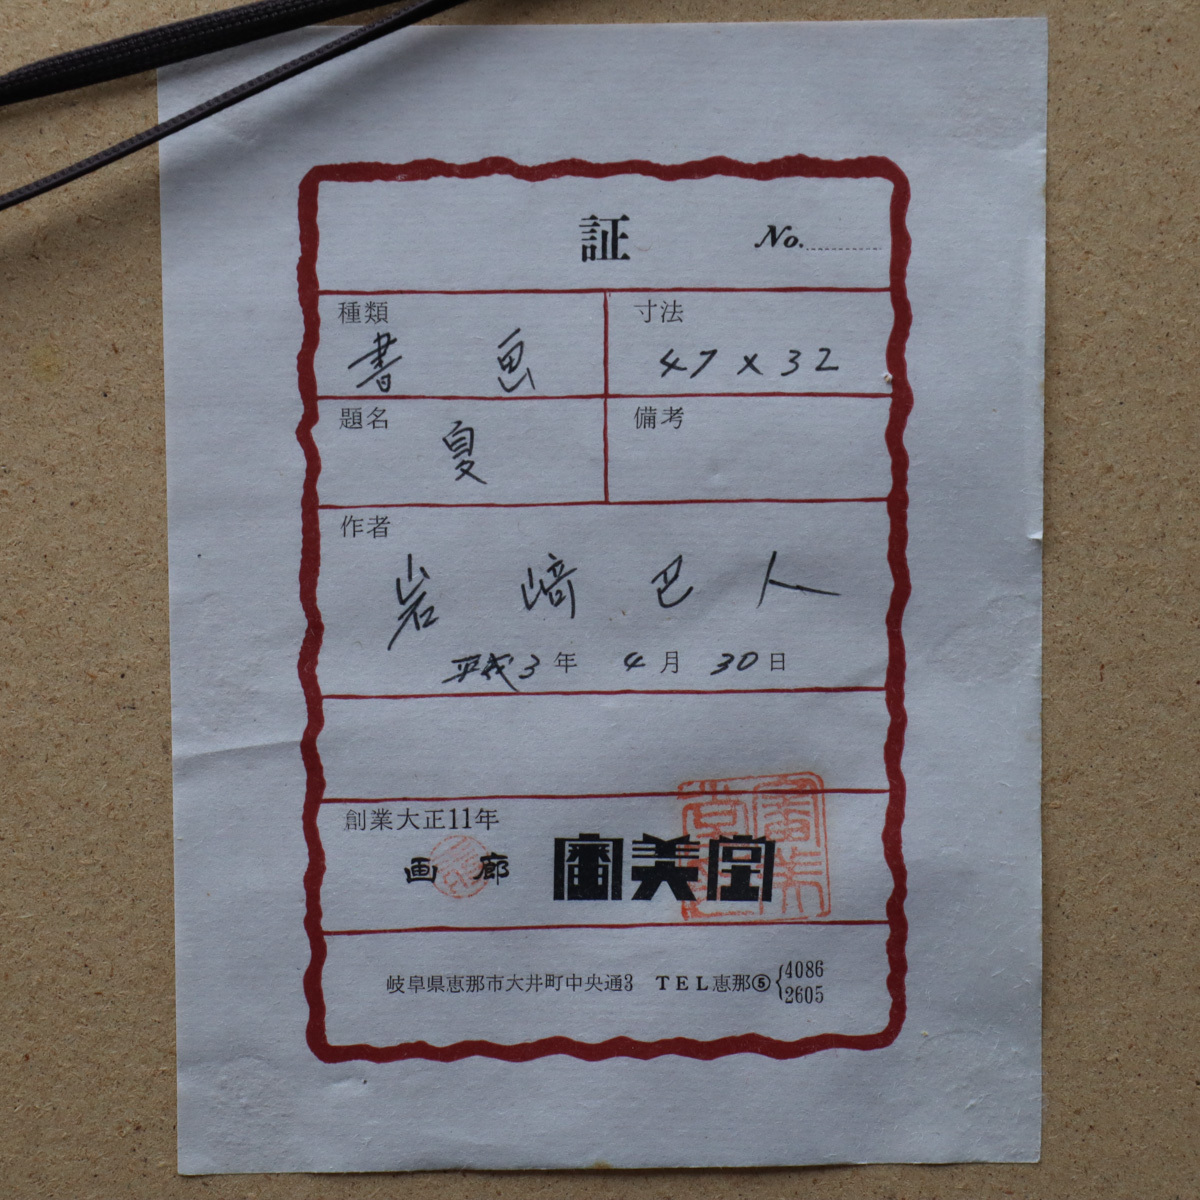 証 No.
種類 寸法
書画 47×32
題名 備考
夏
作者
岩崎巴人
平成3年 4月 30日
創業大正11年
画廊 審美堂
岐阜県恵那市大井町中央通3 TEL恵那⑤{4086
2605